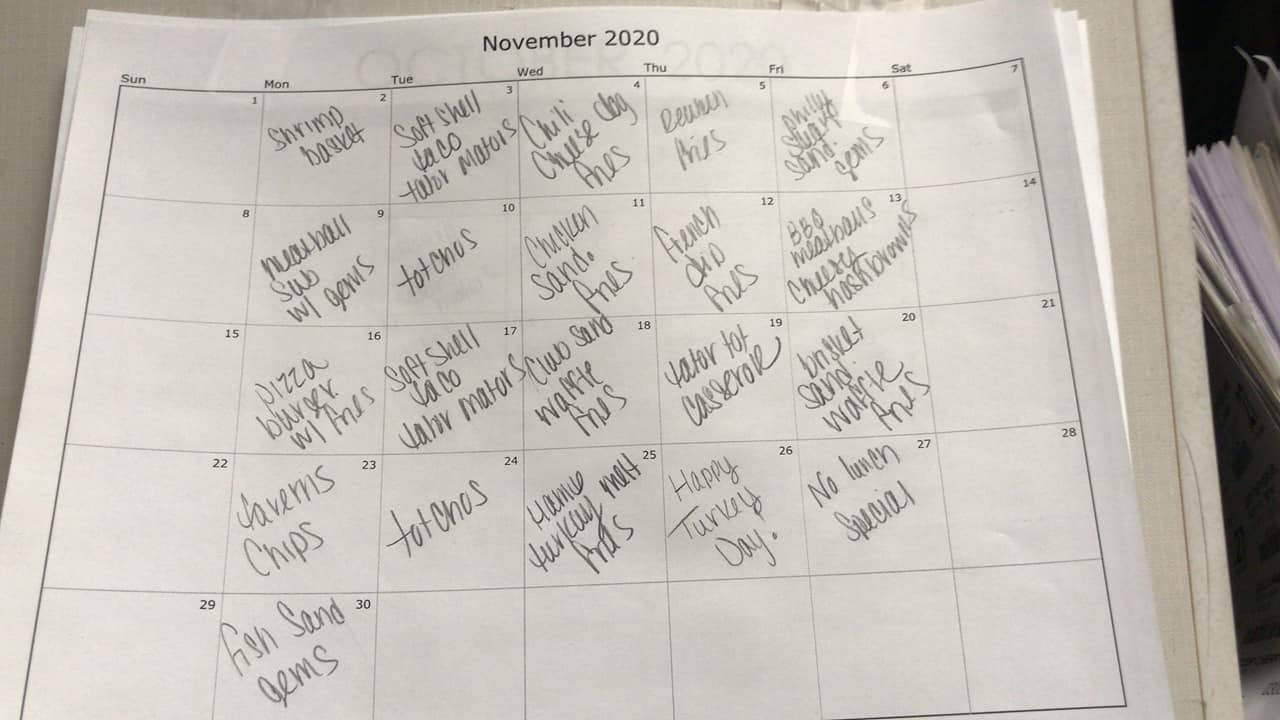 November 2020
Sun Mon Tue Wed Thu Fri Sat
1
2
Shrimp
basket
3
Soft Shell
taco
tator mators
4
Chili
Cheese dog
fries
5
Reuben
fries
6
philly
steak
sand.
gems
7
8
9
meatball
sub
w/ gems
10
totchos
11
Chicken
sand.
fries
12
french
dip
fries
13
BBQ
meatballs
cheesy
hashbrowns
14
15
16
pizza
burger
w/ fries
17
Soft Shell
taco
tator mators
18
Club Sand
waffle
fries
19
tator tot
casserole
20
brisket
sand
waffle
fries
21
22
23
taverns
Chips
24
totchos
25
turkey melt
fries
26
Happy
Turkey
Day!
27
No lunch
Special
28
29
30
fish Sand
gems